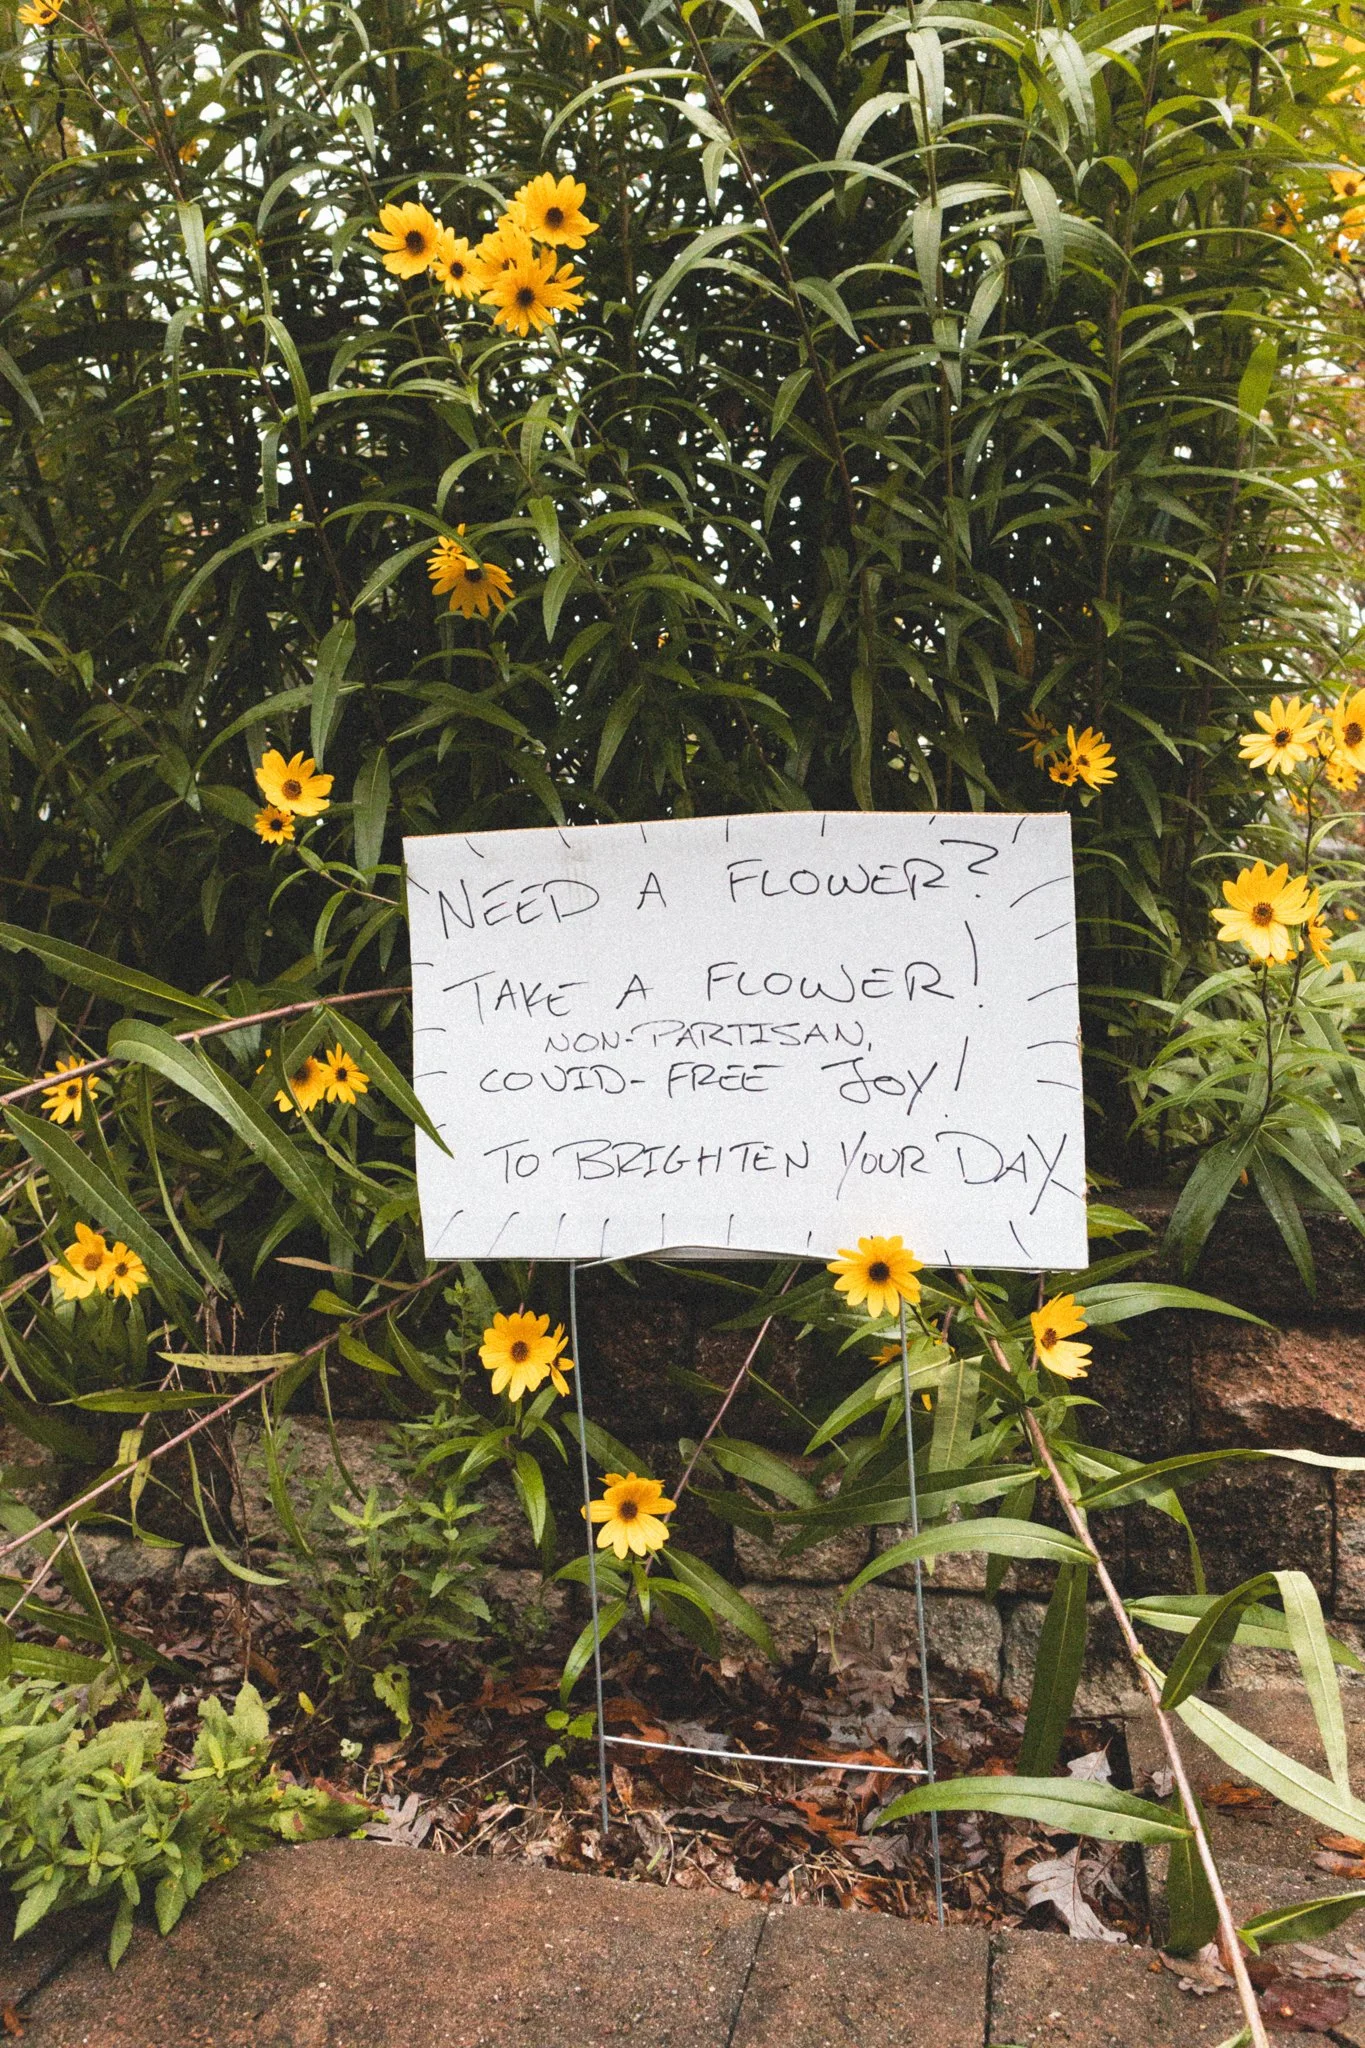 NEED A FLOWER?
TAKE A FLOWER!
NON-PARTISAN,
COVID-FREE JOY!
TO BRIGHTEN YOUR DAY